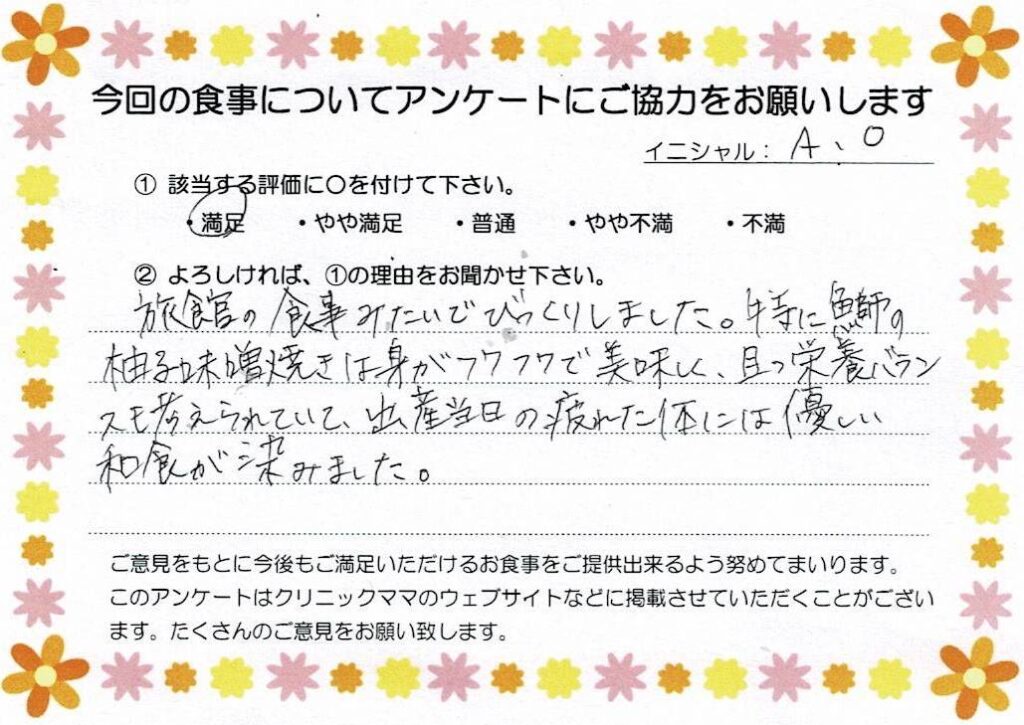 今回の食事についてアンケートにご協力をお願いします
イニシャル： A.O
① 該当する評価に〇を付けて下さい。
・満足 ・やや満足 ・普通 ・やや不満 ・不満
② よろしければ、①の理由をお聞かせ下さい。
旅館の食事みたいでびっくりしました。特に鰤の
柚子味噌焼きは身がフワフワで美味しく、且つ栄養バラン
スも考えられていて、出産当日の疲れた体には優しい
和食が染みました。
ご意見をもとに今後もご満足いただけるお食事をご提供出来るよう努めてまいります。
このアンケートはクリニックママのウェブサイトなどに掲載させていただくことがござい
ます。たくさんのご意見をお願い致します。